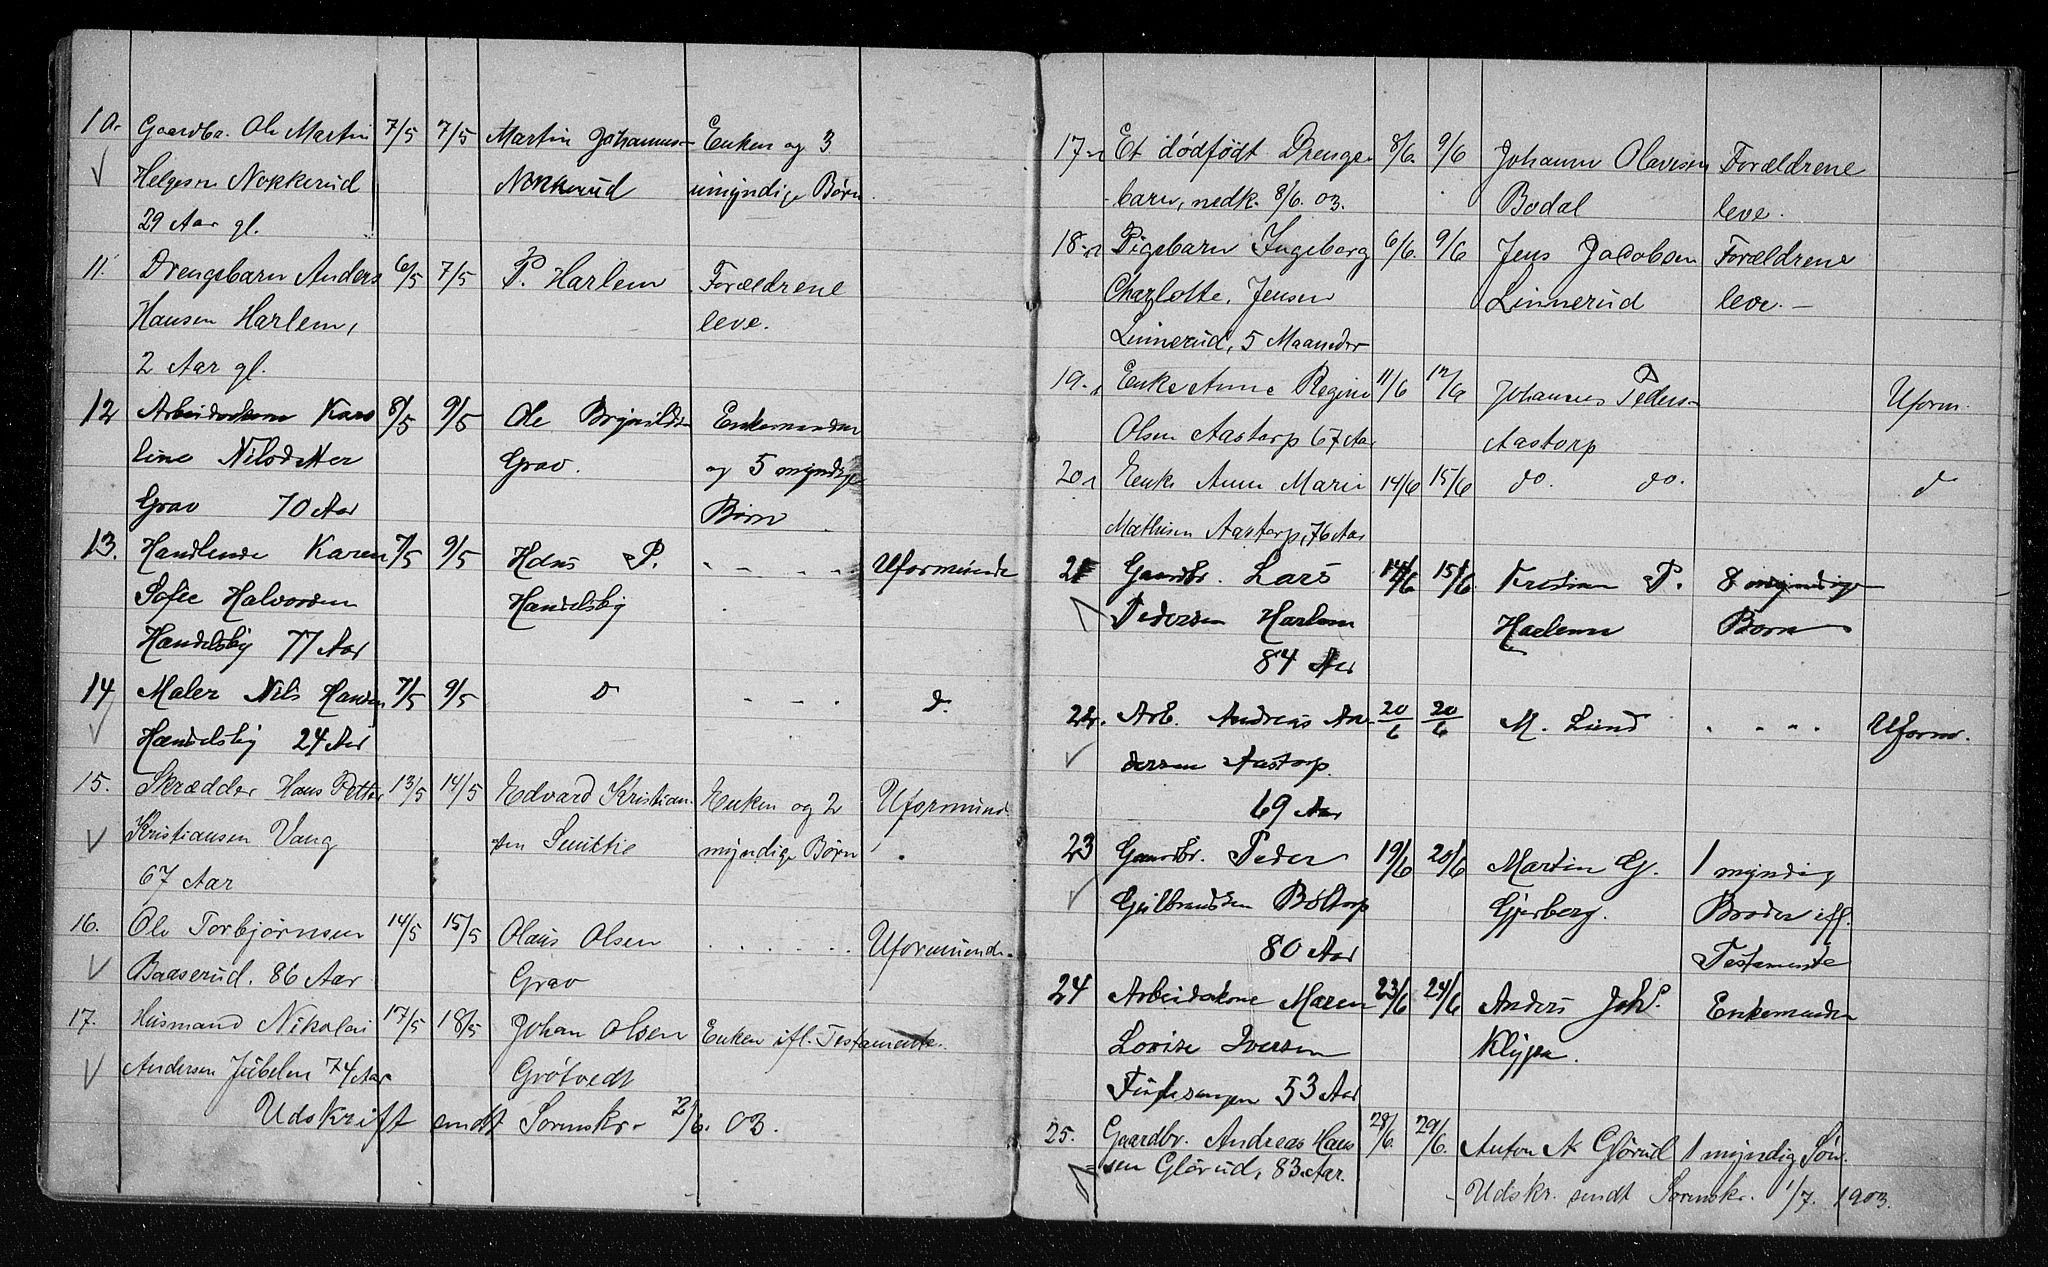 10. Gaardbr. Ole Martin 7/5 7/5 Martin Johannes- Enken og 3
Helgesen Nokkerud Nokkerud umyndige Børn.
29 Aar gl.
11. Drengebarn Anders 6/5 7/5 P. Harlem Forældrene
Hansen Harlem, leve.
2 Aar gl.
12 Arbeiderkone Karo 8/5 9/5 Ole Brynildsen Enkemanden
line Nilsdatter Grav. og 5 myndige
Grav 70 Aar Børn
13. Handlende Karen 7/5 9/5 Hans P. " " " " Uformuende
Sofie Halvorsen Handelsby
Handelsby 77 Aar
14 Maler Nils Hansen 7/5 9/5 do " " " do.
Handelsby 24 Aar
15. Skrædder Hans Petter 13/5 14/5 Edvard Kristian- Enken og 2 Uformuend.
Kristiansen Vang sen Smittie myndige Børn
67 Aar
16. Ole Torbjørnsen 14/5 15/5 Olaus Olsen . . . . . . Uformuende.
Baaserud. 86 Aar Grav
17. Husmand Nikolai 17/5 18/5 Johan Olsen Enken ifl. Testamente.
Andersen Jubelen 74 Aar Grøtvedt
Udskrift sendt Sorenskr. 2/6. 03.
17 Et dødfødt Drenge- 8/6. 9/6 Johann Olavesen Forældrene
barn, nedk. 8/6. 03. Bodal leve.
18 Pigebarn Ingeborg 6/6. 9/6 Jens Jacobsen Forældrene
Charlotte Jensen Linnerud leve. –
Linnerud, 5 Maaneder
19. Enke Anne Regine 11/6 12/6 Johannes Peders- Uform.
Olsen Aastorp 67 Aar Aastorp
20 Enke Anne Marie 14/6 15/6 do. do. do
Mathisen Aastorp, 76 Aar
21 Gaardbr. Lars 14/6 15/6. Kristian P. 8 myndige
Pedersen Harlem Harlem Børn
84 Aar
22. Arb. Andreas An- 20/6 20/6 M. Lund . . . . Uform.
dersen Aastorp.
69 Aar
23 Gaardbr. Peder 19/6 20/6 Martin G. 1 myndig
Gulbrandsen Bøltorp Gjerberg. Broder ifl.
80 Aar Testamente
24 Arbeiderkone Maren 23/6 24/6 Anders Johs. Enkemanden
Lovise Iversen Klypen.
53 Aar
25. Gaardbr. Andreas Han 28/6. 29/6. Anton A Glørud 1 myndig Søn.
sen Glørud, 83 Aar.
Udskr. sendt Sorenskr. 1/7. 1903.